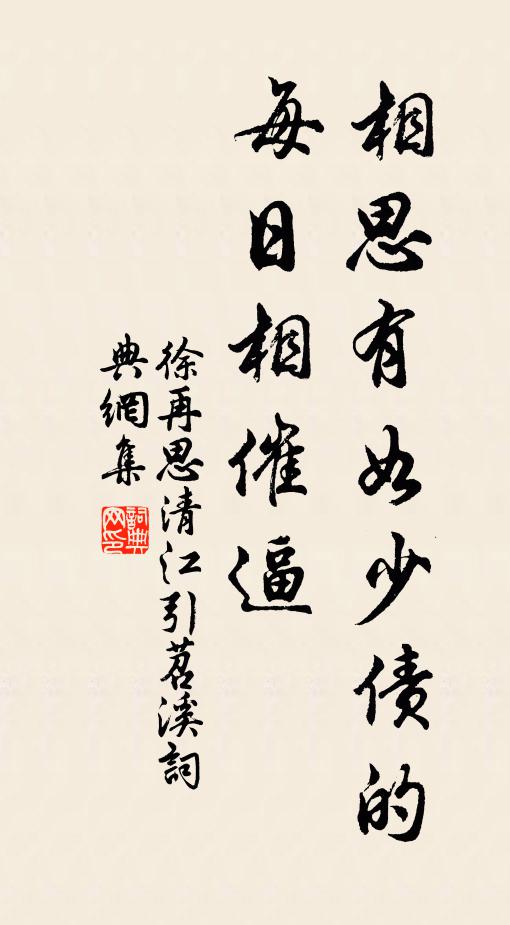 相思有如少债的
每日相催逼
徐再思清江引苕溪詞
典網集
詞典网印